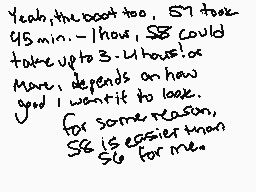 Yeah, the boat too, S7 took
45 min. - 1 hour, S8 could
take up to 3-4 hours! or
More, depends on how
good I want it to look.
for some reason,
S8 is easier than
S6 for me.